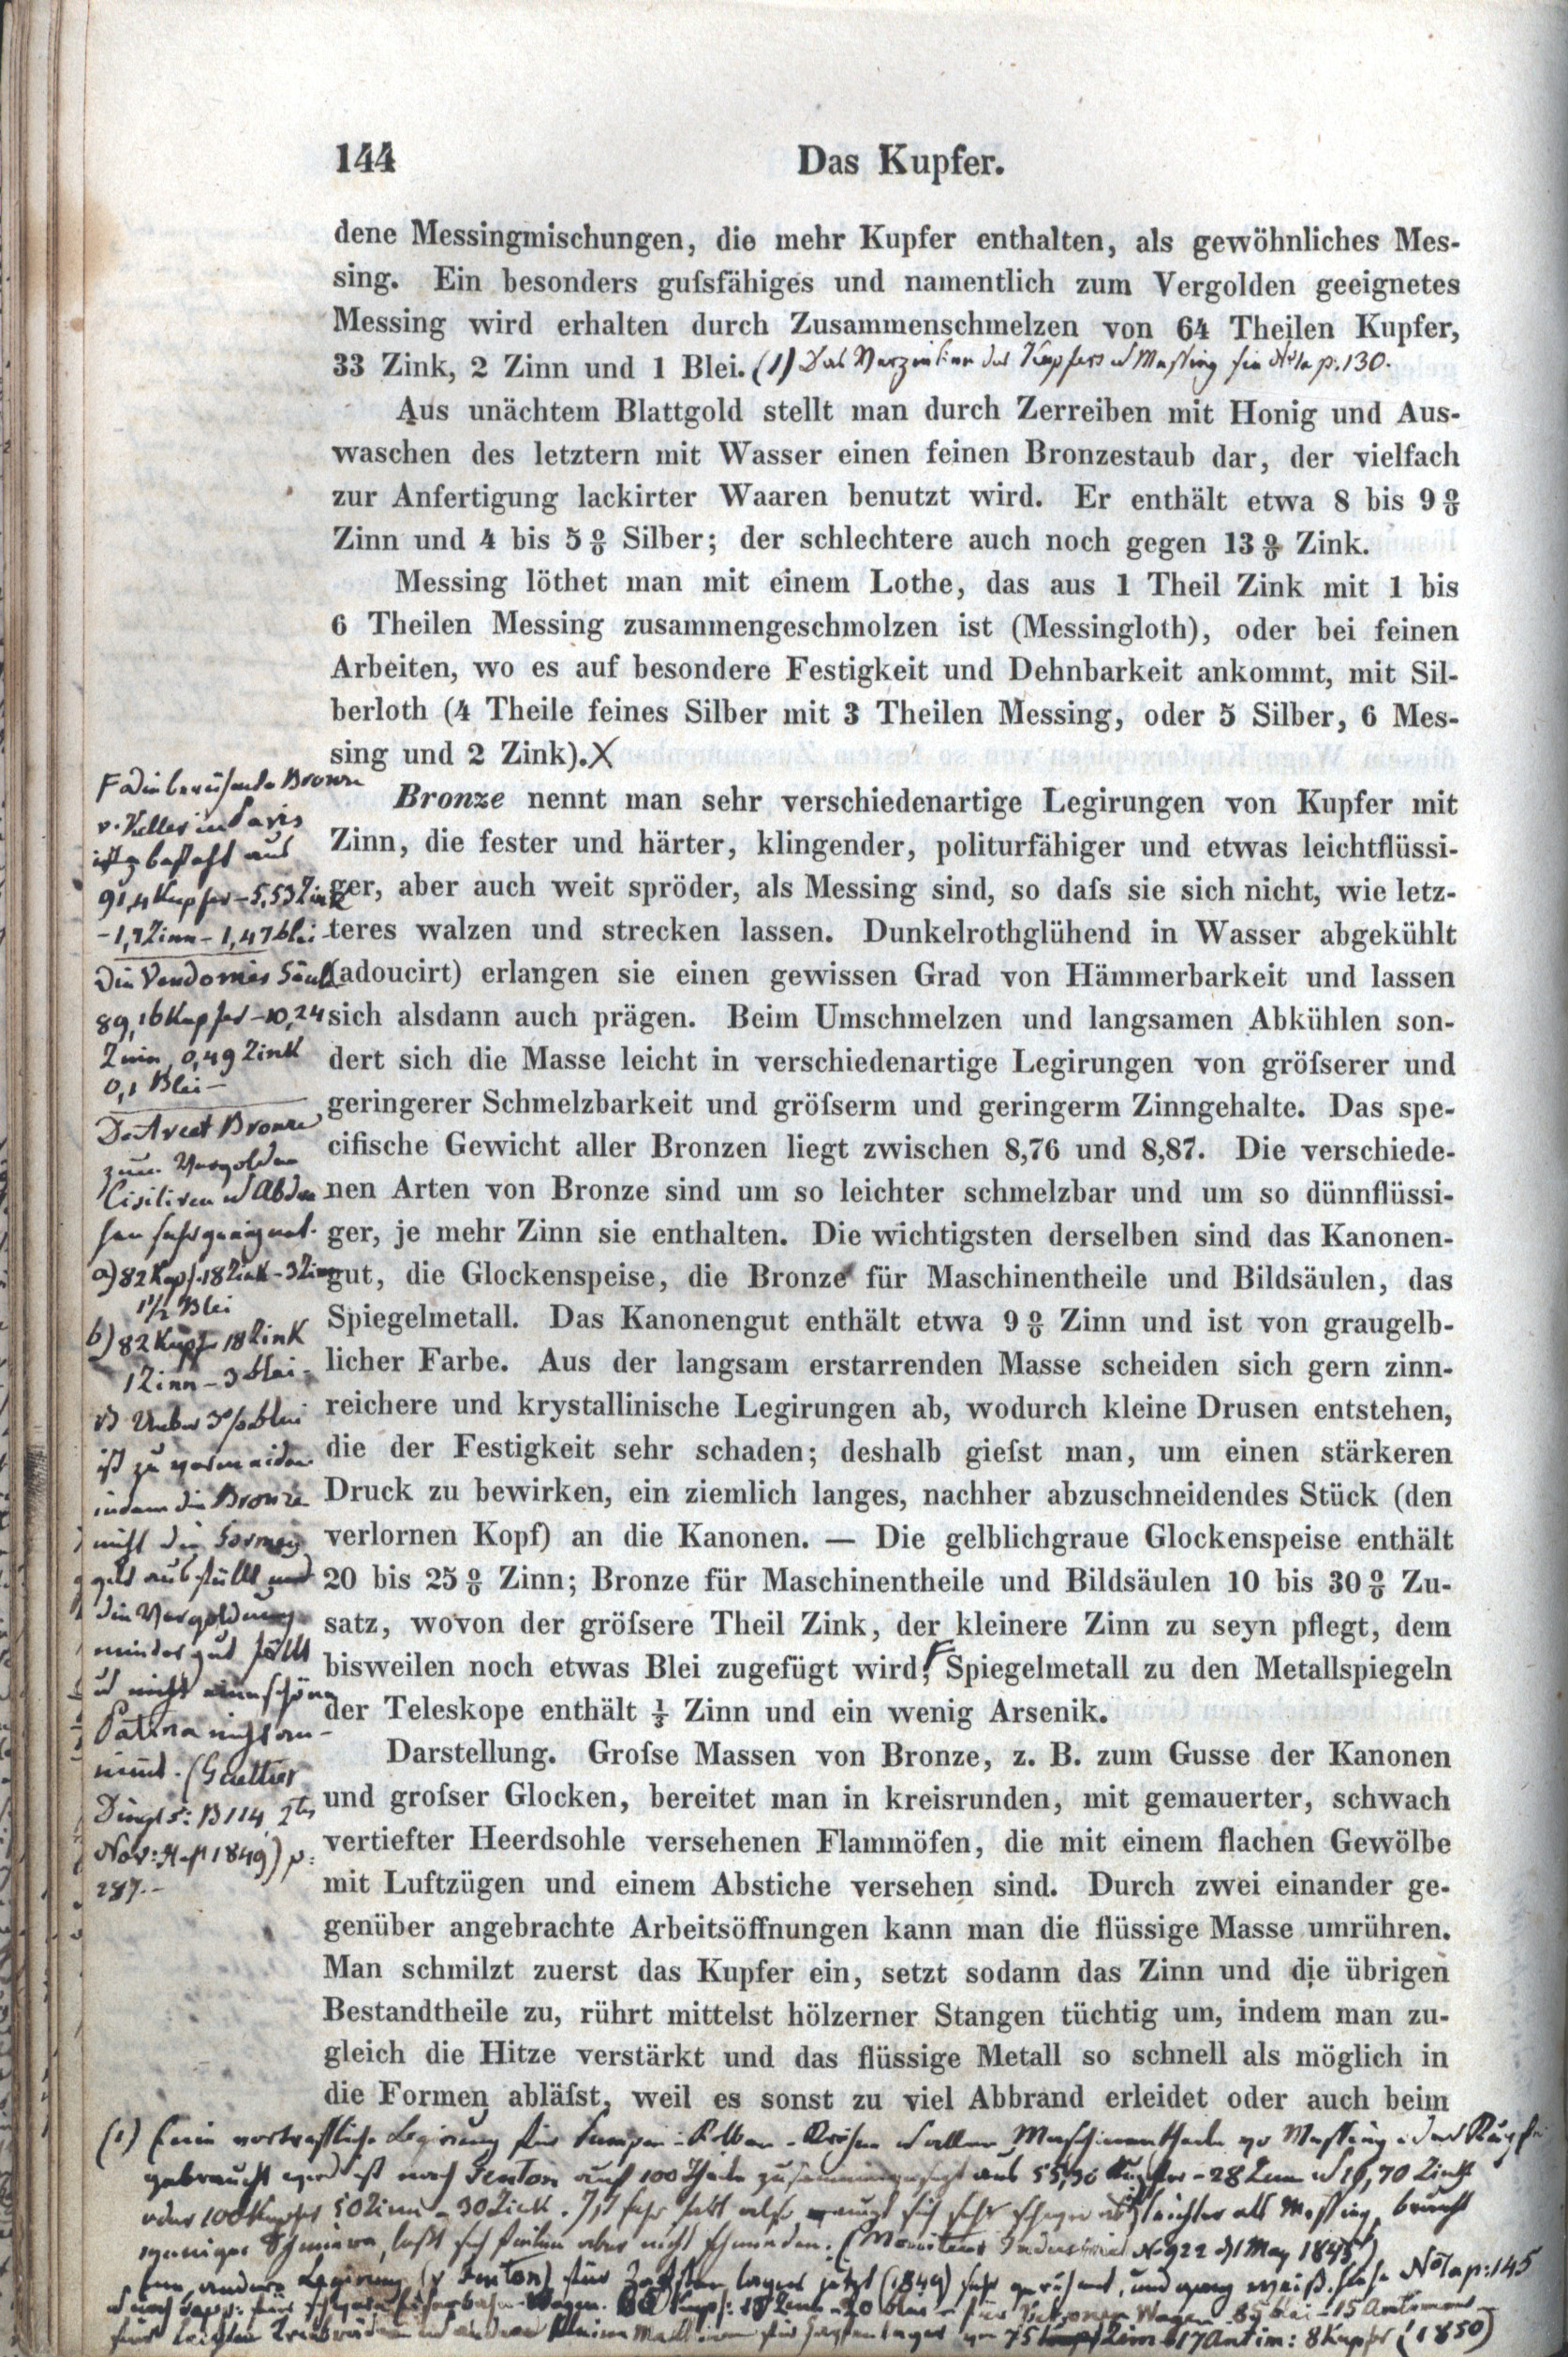 144 Das Kupfer.
dene Messingmischungen, die mehr Kupfer enthalten, als gewöhnliches Mes-
sing. Ein besonders guſsfähiges und namentlich zum Vergolden geeignetes
Messing wird erhalten durch Zusammenschmelzen von 64 Theilen Kupfer,
33 Zink, 2 Zinn und 1 Blei. (1) Das Verzinken des Kupfers u Messing p. 130.
Aus unächtem Blattgold stellt man durch Zerreiben mit Honig und Aus-
waschen des letztern mit Wasser einen feinen Bronzestaub dar, der vielfach
zur Anfertigung lackirter Waaren benutzt wird. Er enthält etwa 8 bis 9 %
Zinn und 4 bis 5 % Silber; der schlechtere auch noch gegen 13 % Zink.
Messing löthet man mit einem Lothe, das aus 1 Theil Zink mit 1 bis
6 Theilen Messing zusammengeschmolzen ist (Messingloth), oder bei feinen
Arbeiten, wo es auf besondere Festigkeit und Dehnbarkeit ankommt, mit Sil-
berloth (4 Theile feines Silber mit 3 Theilen Messing, oder 5 Silber, 6 Mes-
sing und 2 Zink). X
Bronze nennt man sehr verschiedenartige Legirungen von Kupfer mit
Zinn, die fester und härter, klingender, politurfähiger und etwas leichtflüssi-
ger, aber auch weit spröder, als Messing sind, so daſs sie sich nicht, wie letz-
teres walzen und strecken lassen. Dunkelrothglühend in Wasser abgekühlt
(adoucirt) erlangen sie einen gewissen Grad von Hämmerbarkeit und lassen
sich alsdann auch prägen. Beim Umschmelzen und langsamen Abkühlen son-
dert sich die Masse leicht in verschiedenartige Legirungen von gröſserer und
geringerer Schmelzbarkeit und gröſserm und geringerm Zinngehalte. Das spe-
cifische Gewicht aller Bronzen liegt zwischen 8,76 und 8,87. Die verschiede-
nen Arten von Bronze sind um so leichter schmelzbar und um so dünnflüssi-
ger, je mehr Zinn sie enthalten. Die wichtigsten derselben sind das Kanonen-
gut, die Glockenspeise, die Bronze für Maschinentheile und Bildsäulen, das
Spiegelmetall. Das Kanonengut enthält etwa 9 % Zinn und ist von graugelb-
licher Farbe. Aus der langsam erstarrenden Masse scheiden sich gern zinn-
reichere und krystallinische Legirungen ab, wodurch kleine Drusen entstehen,
die der Festigkeit sehr schaden; deshalb gieſst man, um einen stärkeren
Druck zu bewirken, ein ziemlich langes, nachher abzuschneidendes Stück (den
verlornen Kopf) an die Kanonen. — Die gelblichgraue Glockenspeise enthält
20 bis 25 % Zinn; Bronze für Maschinentheile und Bildsäulen 10 bis 30 % Zu-
satz, wovon der gröſsere Theil Zink, der kleinere Zinn zu seyn pflegt, dem
bisweilen noch etwas Blei zugefügt wird; F Spiegelmetall zu den Metallspiegeln
der Teleskope enthält ⅓ Zinn und ein wenig Arsenik.
Darstellung. Groſse Massen von Bronze, z. B. zum Gusse der Kanonen
und groſser Glocken, bereitet man in kreisrunden, mit gemauerter, schwach
vertiefter Heerdsohle versehenen Flammöfen, die mit einem flachen Gewölbe
mit Luftzügen und einem Abstiche versehen sind. Durch zwei einander ge-
genüber angebrachte Arbeitsöffnungen kann man die flüssige Masse umrühren.
Man schmilzt zuerst das Kupfer ein, setzt sodann das Zinn und die übrigen
Bestandtheile zu, rührt mittelst hölzerner Stangen tüchtig um, indem man zu-
gleich die Hitze verstärkt und das flüssige Metall so schnell als möglich in
die Formen abläſst, weil es sonst zu viel Abbrand erleidet oder auch beim
F die berühmte Bronze
v. Keller in Paris
besteht aus
91,4 Kupfer – 5,53 Zink
– 1,7 Zinn – 1,47 blei –
Die Vendomes Säule
89,16 Kupfer – 10,24
Zinn, 0,49 Zink
0,1 Blei –
D'Arcet Bronze
zum Vergolden
Ciseliren u Abdre
hen sehr geeignet.
a) 82 Kupf. 18 Zink – 3 Zinn
1½ Blei
b) 82 Kupf. 18 Zink
1 Zinn – 3 blei –
Ueber 3 % blei
ist zu vermeiden
indem die Bronze
nicht die Formen
gut ausfüllt und
die Vergoldung
minder gut hält
u nicht eine schöne
Patina nicht an-
nimt. (Gaultier
Dingl B 114, 2tes
Nov: Heft 1849) p:
287. –
(1) Eine vortreffliche Legirung für Pumpen – Kolben – Röhren u allen Maschinentheile wo Messing oder Kupfer
gebraucht wird ist nach Fenton auf 100 Theile zusammengesetzt aus 55,30 Kupfer – 28 Zinn u 16,70 Zink
oder 100 Kupfer 50 Zinn – 30 Zink. Ist sehr sich sehr leichter als Messing, braucht
weniger Schmiere, laßt sich feilen aber nicht schneiden. (Moniteur Industriel No 922 d 1 May 1845)
Eine andere Legirung (v Fenton) für Zapfenlager jetzt (1849) sehr gerühmt, und ganz weiß. siehe Nota p: 145
für Eisenbahn-Wagen. 20 blei – für Personen Wagen 85 blei – 15 Antimon –
für u andere kleine Maschinen für Zapfenlager von 75 Zinn 17 Antim: 8 Kupfer (1850)